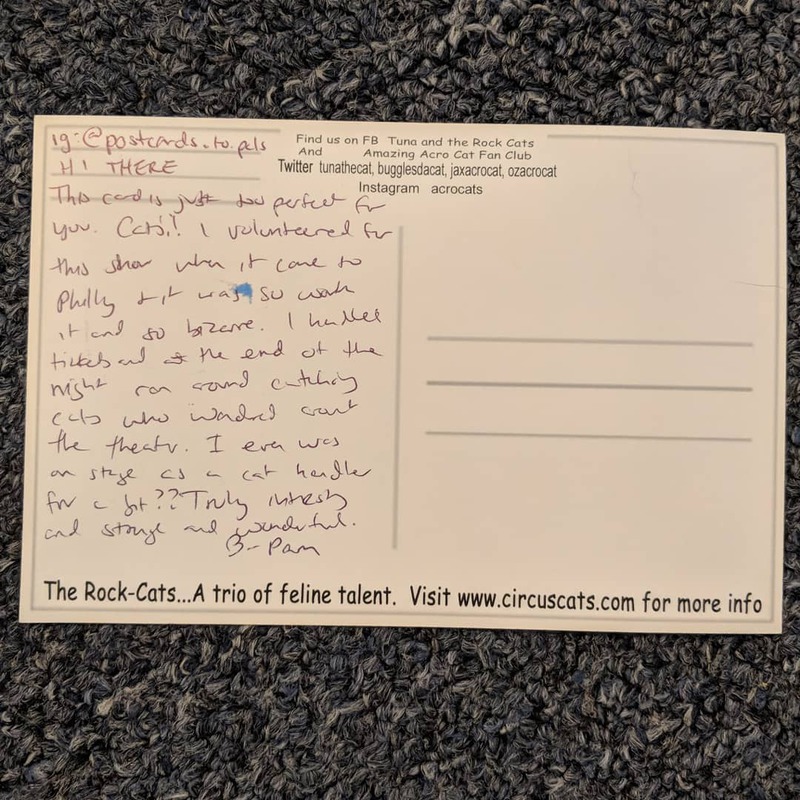 ig:@postcards.to.pals
HI THERE
This card is just too perfect for
you. Cats!! I volunteered for
this show when it came to
Philly & it was so worth
it and so bizarre. I handled
tickets and at the end of the
night ran around catching
cats who wandered around
the theatr. I even was
on stage as a cat handler
for a bit?? Truly
and strange and wonderful.
Pam
Find us on FB Tuna and the Rock Cats
And Amazing Acro Cat Fan Club
Twitter tunathecat, bugglesdacat, jaxacrocat, ozacrocat
Instagram acrocats
The Rock-Cats...A trio of feline talent. Visit www.circuscats.com for more info